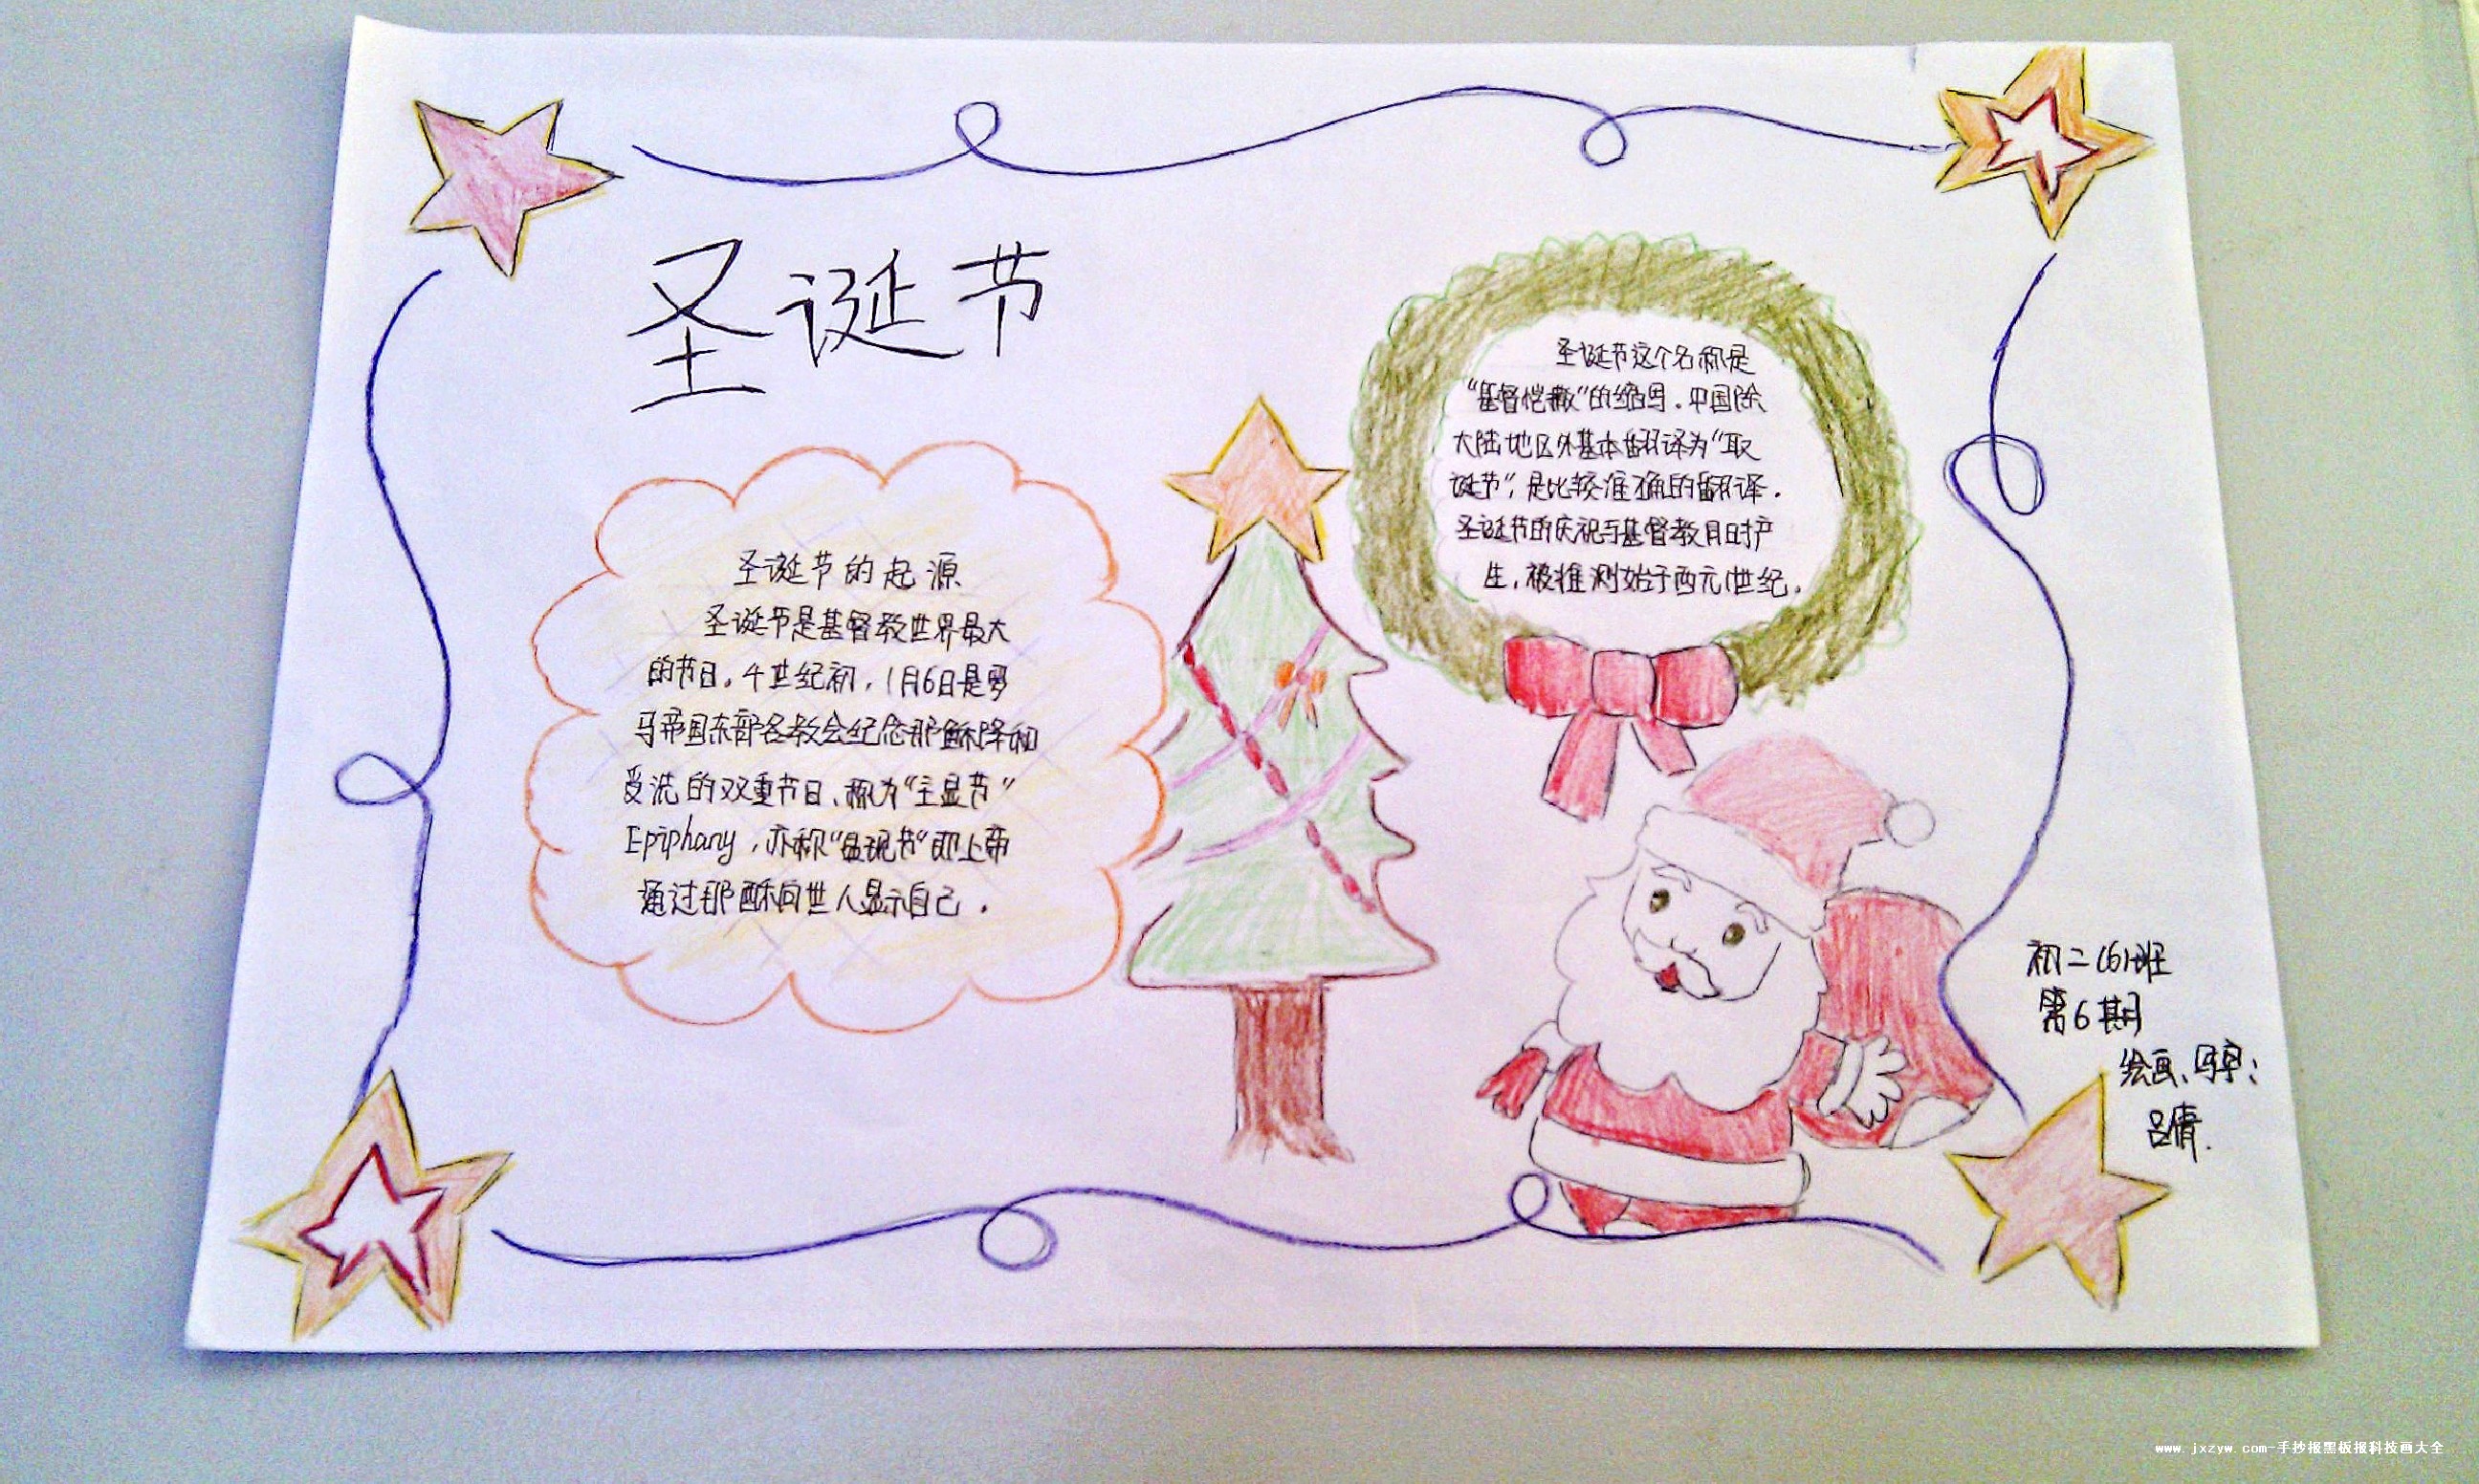 圣诞节
圣诞节的起源
圣诞节是基督教世界最大
的节日。4世纪初，1月6日是罗
马帝国东部各教会纪念耶稣降和
受洗的双重节日、称为“主显节”
Epiphany，亦称“显现节”即上帝
通过耶稣向世人显示自己。
圣诞节这个名称是
“基督恺撒”的缩写．中国除
大陆地区外基本翻译为“取
诞节”，是比较准确的翻译．
圣诞节的庆祝与基督教同时产
生，被推测始于西元1世纪．
初二(6)班
第6期
绘画、写字：
吕倩．
www.jxzyw.com-手抄报黑板报科技画大全